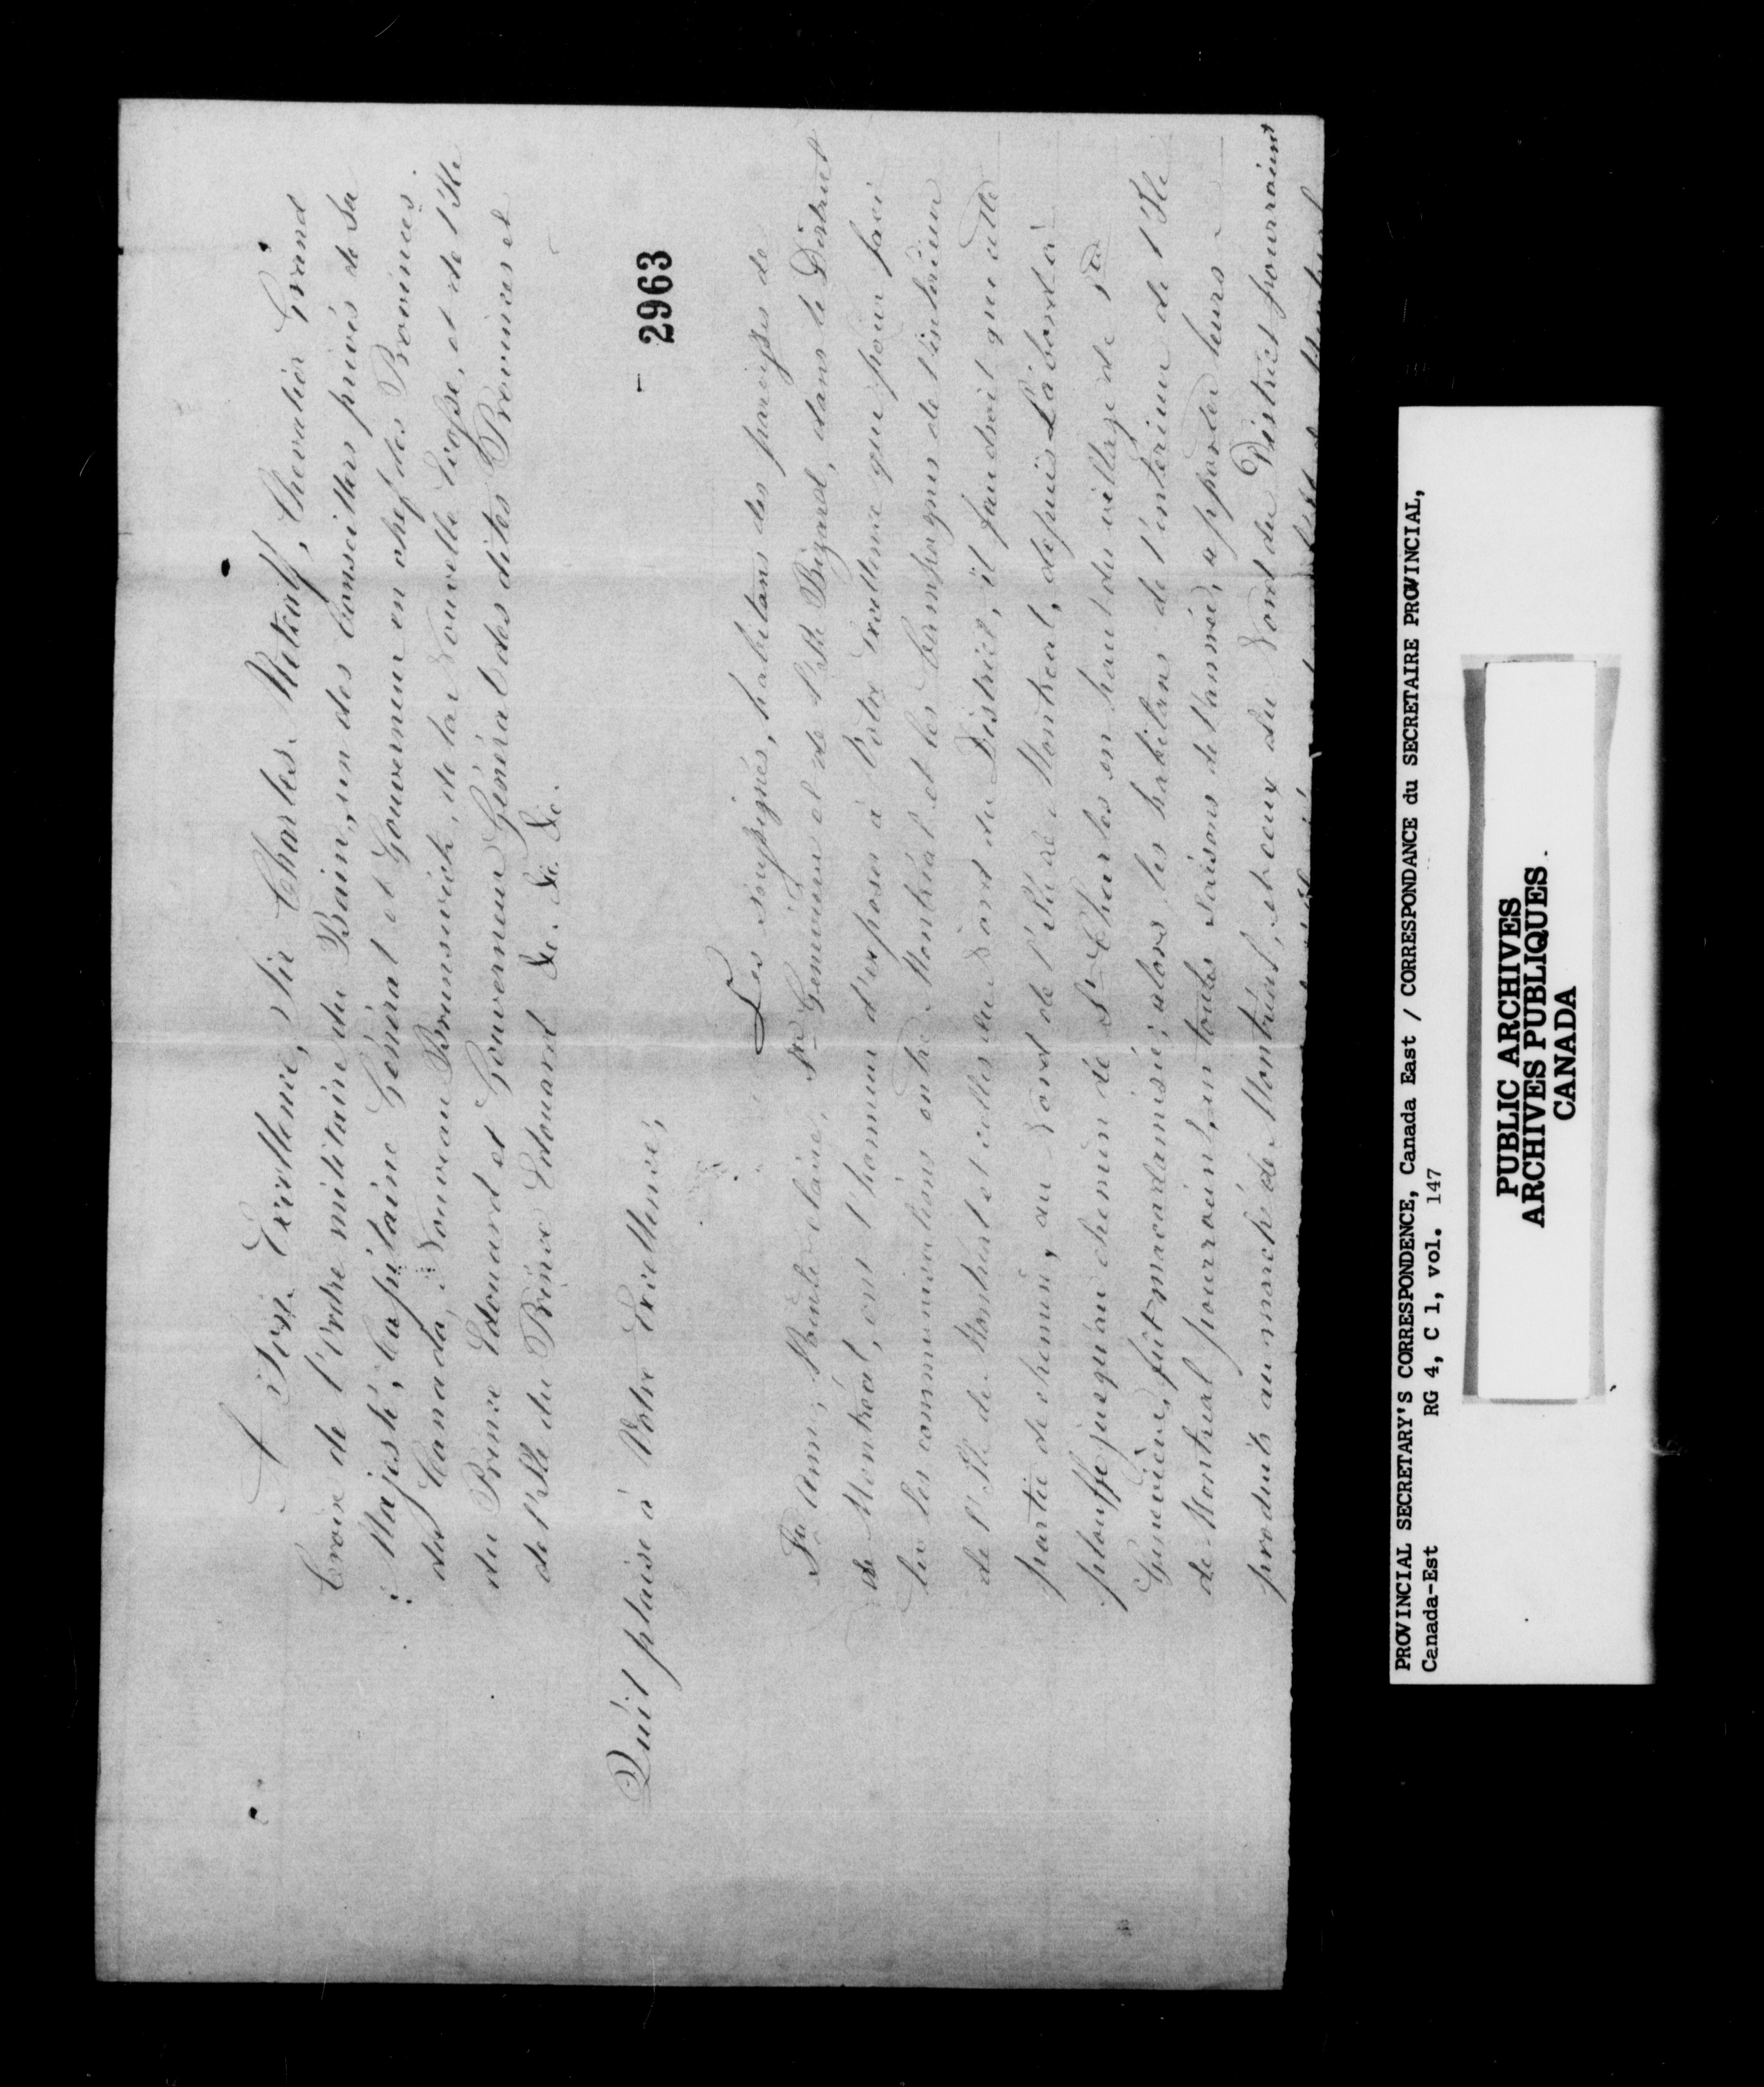 A Son Excellence, Sir Charles Metcalf, Chevalier Grand
Croix de l'Ordre militaire du Bain, un des Conseillers privés de Sa
Majesté, Capitaine Général et Gouverneur en chef des Provinces
du Canada, Nouveau Brunswick, de la Nouvelle Ecosse, et de l'Isle
du Prince Edouard et Gouverneur Général des dites Provinces et
de l'Isle du Prince Edouard &c. &c. &c.
- 2963
Qu'il plaise à Votre Excellence,
Les soussignés, habitans des paroisses de
Ste Anne, Pointe claire, Ste Geneviève et de l'Isle Bizard, dans le District
de Montréal, ont l'honneur d'exposer à Votre Excellence que pour faci
liter les communications entre Montréal et les Campagnes de l'intérieur
de l'Isle de Montréal et celles du Nord du District, il faudroit que cette
partie de chemin, au Nord de l'Isle de Montreal, depuis l'abord à
plouffe jusqu'au chemin de St Charles en haut du village de Ste
Geneviève, fût macadamisé; alors les habitans de l'intérieur de l'Isle
de Montréal pourroient, en toutes saisons de l'année, apporter leurs
produits au marché de Montréal, et ceux du Nord du District pourroient
PROVINCIAL SECRETARY'S CORRESPONDENCE, Canada East / CORRESPONDANCE du SECRETAIRE PROVINCIAL,
Canada-Est RG 4, C 1, vol. 147
PUBLIC ARCHIVES
ARCHIVES PUBLIQUES
CANADA